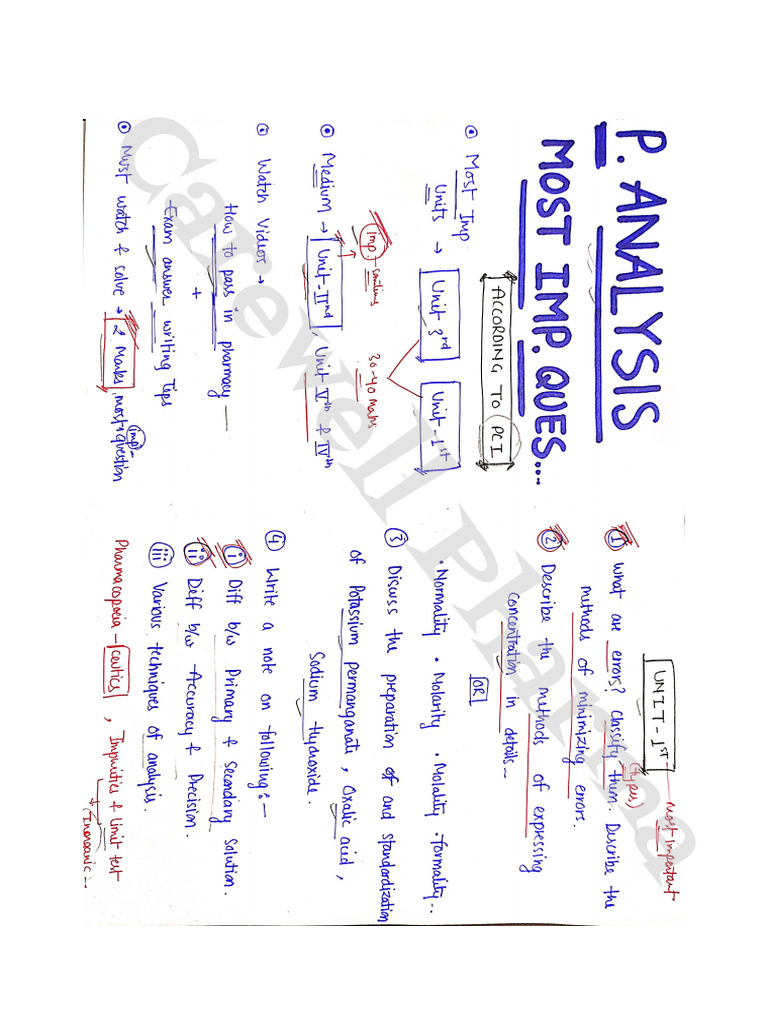 P. ANALYSIS
MOST IMP. QUES....
ACCORDING TO PCI
Most Imp
Units → Unit 3rd Unit-1st
30-40 Marks
Imp.
Medium → Unit-IInd, Unit Vth & IVth
Watch Videos →
How to pass in pharmacy
+
Exam answer writing Tips
Must watch & solve → 2 Marks, most Imp question
UNIT-1ST
most important
(types)
1) What are errors? Classify them. Describe the
methods of minimizing errors.
2) Describe the methods of expressing
concentration in details-
OR
• Normality • Molarity • Molality • formality..
3) Discuss the preparation of and standardization
of Potassium permanganate, Oxalic acid,
Sodium Hydroxide.
4) Write a note on following:-
i) Diff b/w Primary & Secondary Solution.
ii) Diff b/w Accuracy & Precision.
iii) Various techniques of analysis.
Pharmacopoeia - ceutics, Impurities & limit test
(Inorganic...
Carewell Pharma